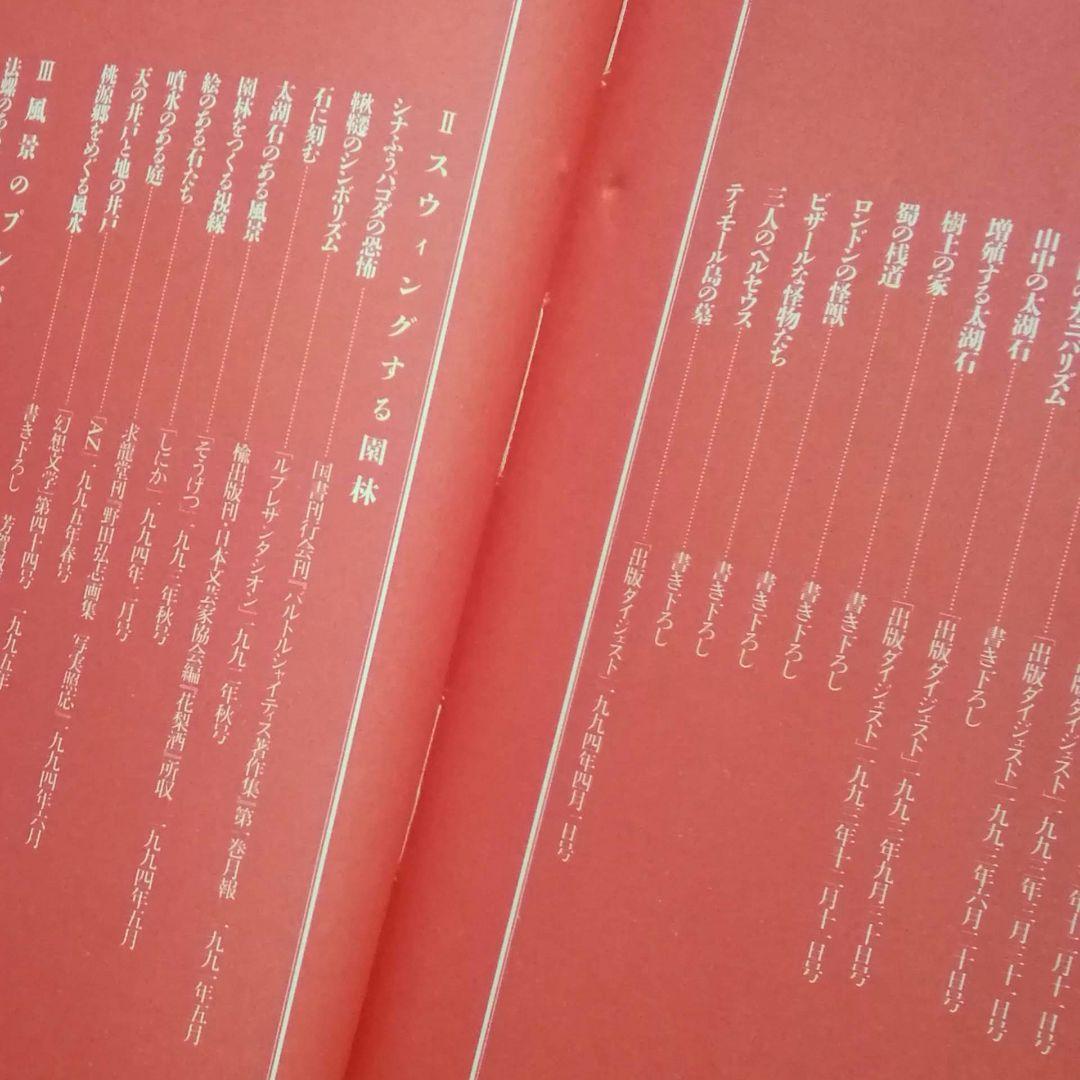 のカニバリズム……書き下ろし
山中の太湖石……「出版ダイジェスト」一九九三年九月三十日号
増殖する太湖石……「出版ダイジェスト」一九九三年十二月十一日号
樹上の家……書き下ろし
蜀の桟道……書き下ろし
ロンドンの怪獣……書き下ろし
ビザールな怪物たち……書き下ろし
三人のペルセウス……書き下ろし
ティモール島の墓……「出版ダイジェスト」一九九四年四月一日号
II スウィングする園林
シナふうパゴダの恐怖……国書刊行会刊『バルトルシャイティス著作集』第一巻月報 一九九一年五月
鞦韆のシンボリズム……「ルプレザンタシオン」一九九一年秋号
石に刻む……楡出版刊・日本文芸家協会編『花梨酒』所収 一九九四年五月
太湖石のある風景……「そうけつ」一九九三年秋号
園林をつくる視線……「しにか」一九九四年二月号
絵のある石たち……求龍堂刊『野田弘志画集 写実照応』一九九四年六月
噴水のある庭……「AZ」一九九五年春号
天の井戸と地の井戸……「幻想文学」第四十四号 一九九五年
桃源郷をめぐる風水……書き下ろし
III 風景の
法螺の